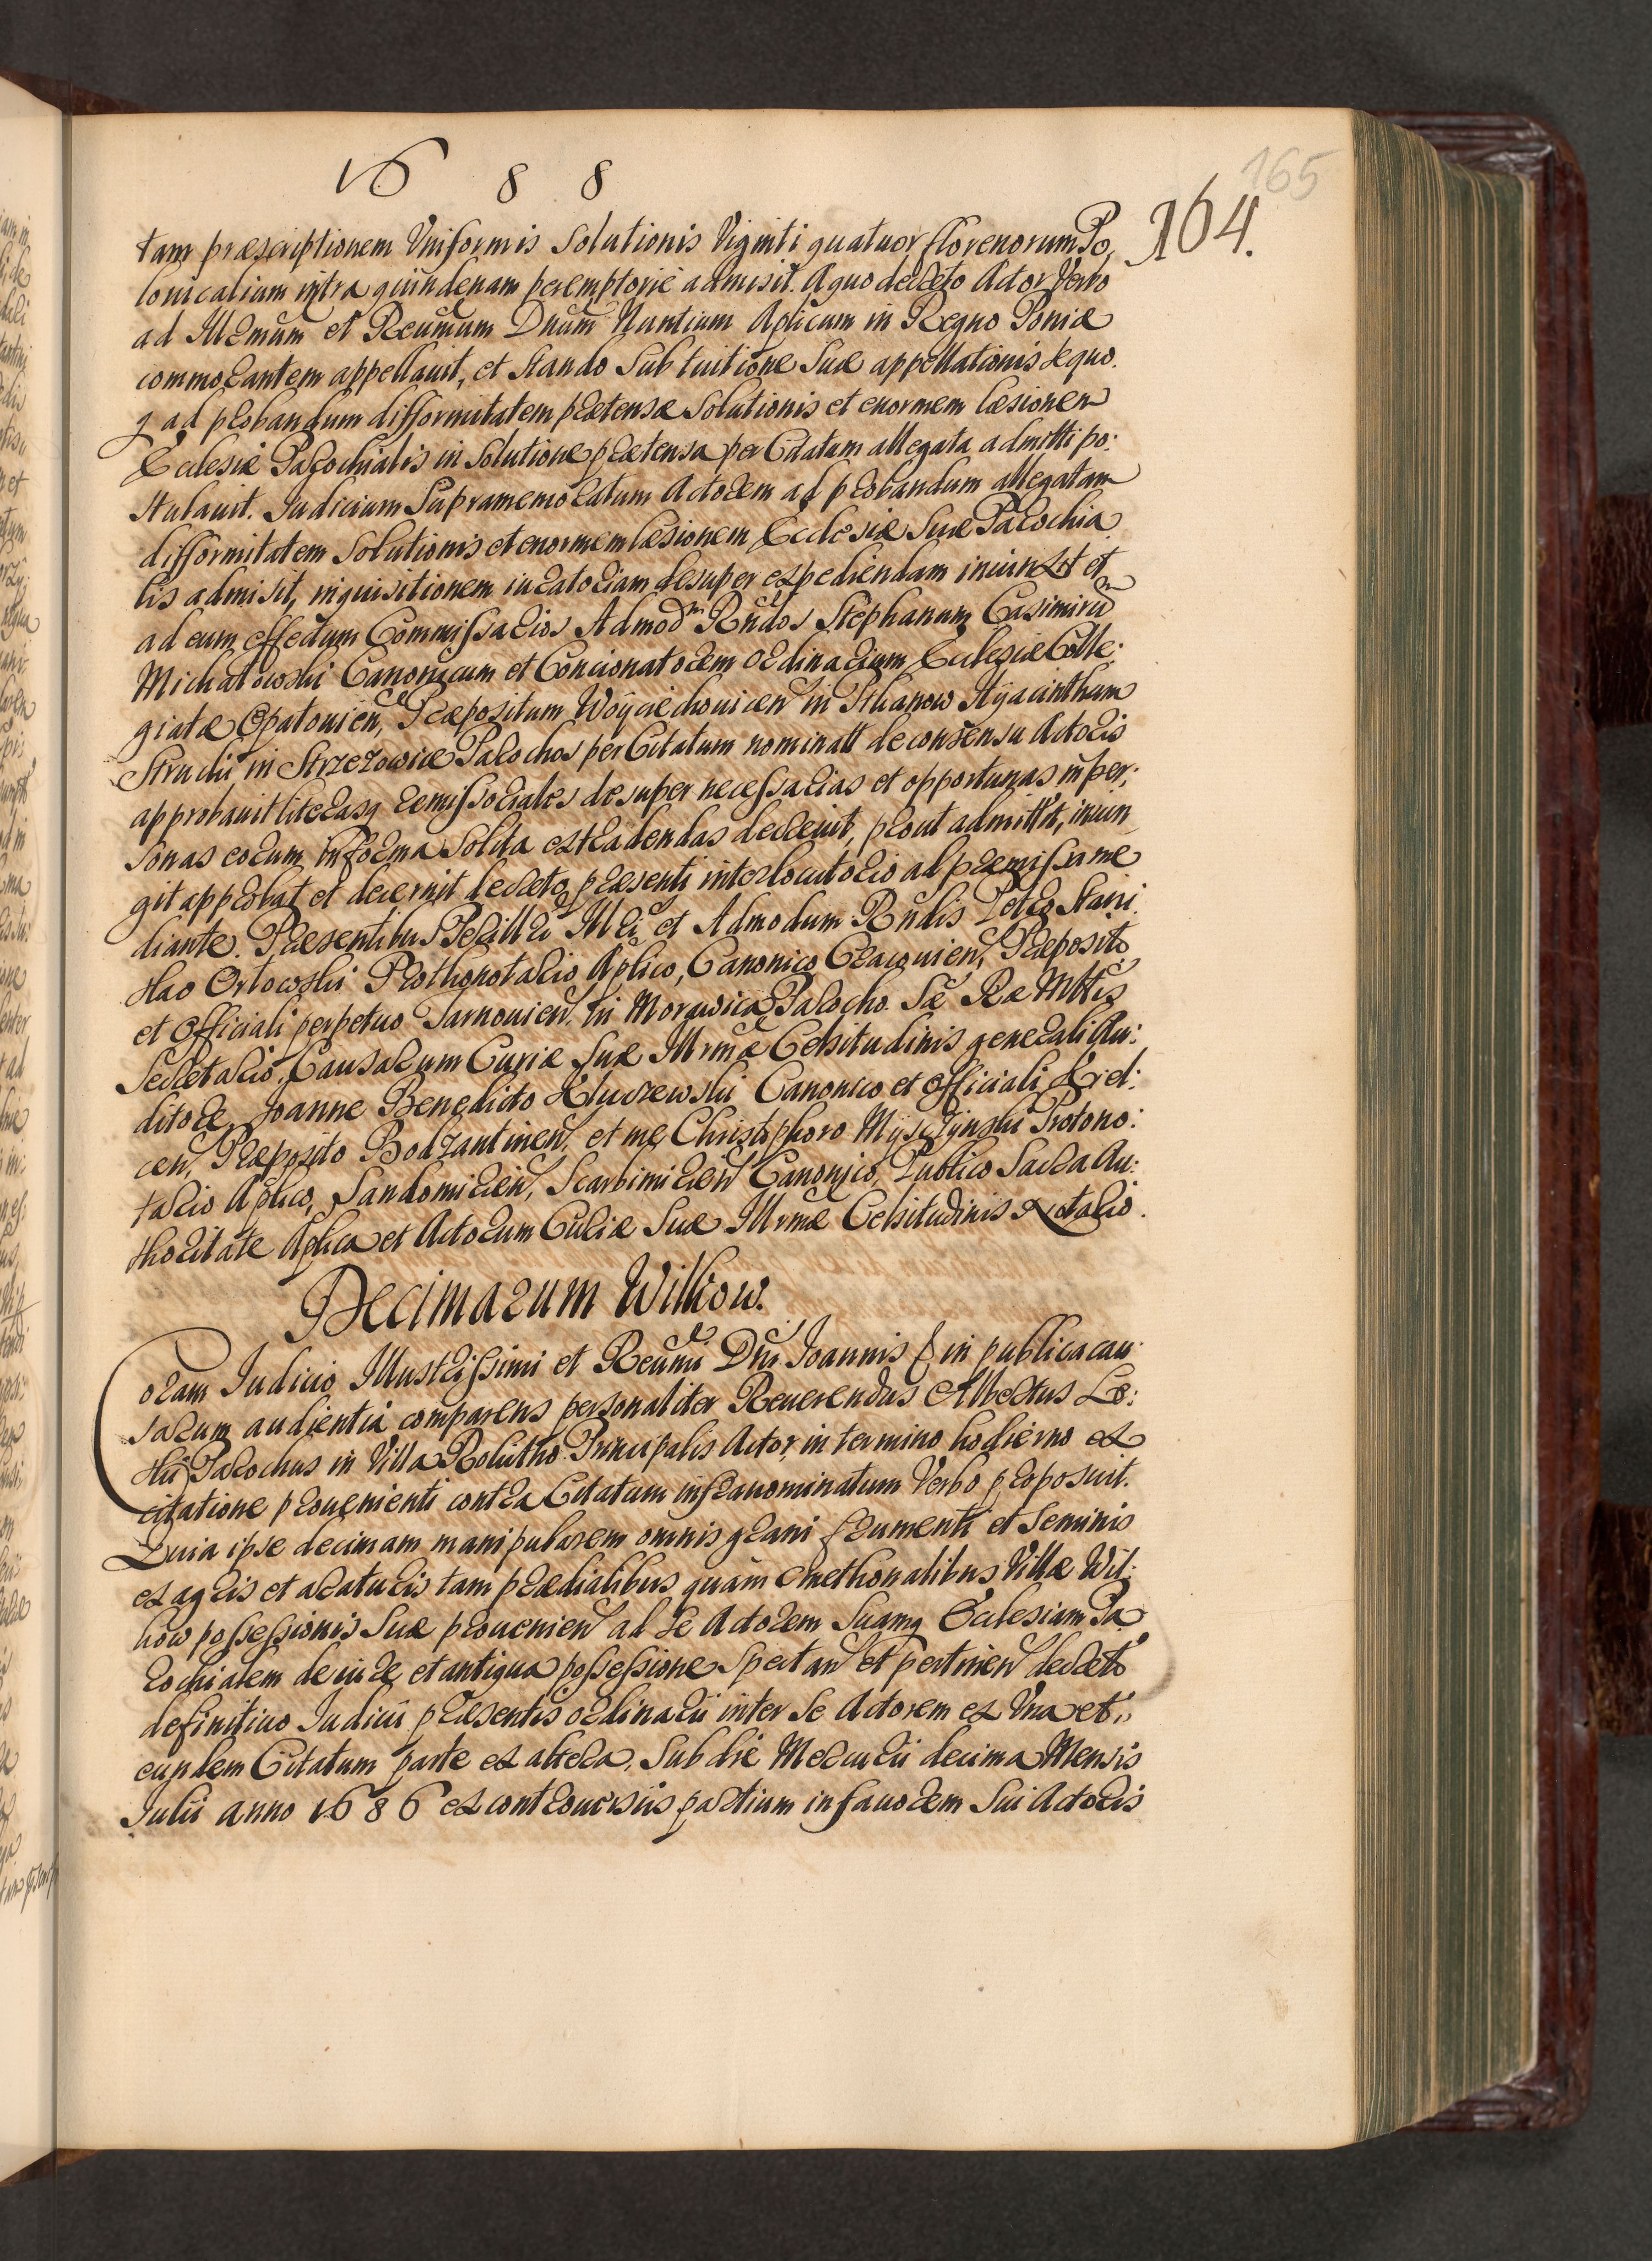 1688
165
164.
tam præscriptionem Vniformis Solutionis Viginti quatuor florenorum Po,
lonicalium intra quindenam peremptorie admisit. A quo decreto Actor Verbo
ad Illrmum et Reurmum Dnum Nuntium Aplicum in Regno Poniæ
commorantem appellauit, et stando Sub tuitione Suæ appellationis
ad probandum difformitatem prætensæ Solutionis et enormem læsionem
Ecclesiæ Parochialis in Solutione prætensa per Citatum allegata admitti po:
stulauit. Iudicium Supramemoratum Actorem ad probandum allegatam
difformitatem Solutionis et enormem læsionem Ecclesiæ Suæ Parochia
lis admisit, inquisitionem iuratoriam desuper expediendam iniunxit et
ad eum effectum Commissarios Admodm Rndos Stephanum Casimirum
Michałowski Canonicum et Concionatorem ordinarium Ecclesiæ Colle:
giatæ Opatouien, Præpositum Woyciechouicen in Hyacinthum
in Strzezowice Parochos per Citatum nominatt de consensu Actoris
approbauit literasq remissoriales desuper necessarias et opportunas in per:
sonas eorum in forma Solita extradendas decreuit, prout admittit, iniun
git approbat et decernit decreto præsenti interlocutorio ad præmissa me
diante. Præsentibus Perillri Illri et Admodum Rndis Petro Stani
slao Orłowski Prothonotario Aplico, Canonico Cracouien, Præposito
et Officiali perpetuo Tarnouien. in Morawica Parocho. Sæ Ræ Mttis
Secretario. Causarum Curiæ Suæ Illrmæ Celsitudinis generali Au:
ditore Joanne Benedicto Kluczewski Canonico et Officiali Kiel:
cen, Præposito Bodzantinen. et me Christophoro Myszczynski Protono:
tario Aplico, Sandomirien, Scarbimirien Canonico, Publico Sacra Au:
thoritate Aplica et Actorum Curiæ Suæ Illrmæ Celsitudinis Notario.
Decimarum Wilkow.
Coram Iudicio Illustrissimi et Reurmi Dni Ioannis in publica cau
sarum audientia comparens personaliter Reuerendus Albertus
Parochus in Villa Principalis Actor, in termino hodierno ex
citatione prouenienti contra Citatum infranominatum Verbo proposuit.
Quia ipse decimam manipularem omnis grani frumenti et Seminis
ex agris et araturis tam prædialibus quàm cmethonalibus Villæ Wil:
kow possessionis Suæ prouenien ad Se Actorem Suamq Ecclesiam Pa
rochialem de iure et antiqua possessione Spectan et pertinen decreto
definitiuo Iudicii præsentis ordinarii inter Se Actorem ex Vna et
eundem Citatum parte ex altera, Sub die Mercurii decima Mensis
Julii anno 1686 ex controuersiis partium in fauorem Sui Actoris